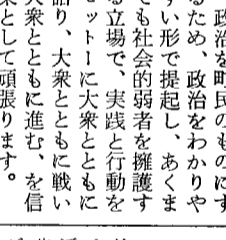 政治を町民のものにす
るため、政治をわかりや
すい形で提起し、あくま
でも社会的弱者を擁護す
る立場で、実践と行動を
モットーに大衆とともに
語り、大衆とともに戦い
大衆とともに進む、を信
条として頑張ります。